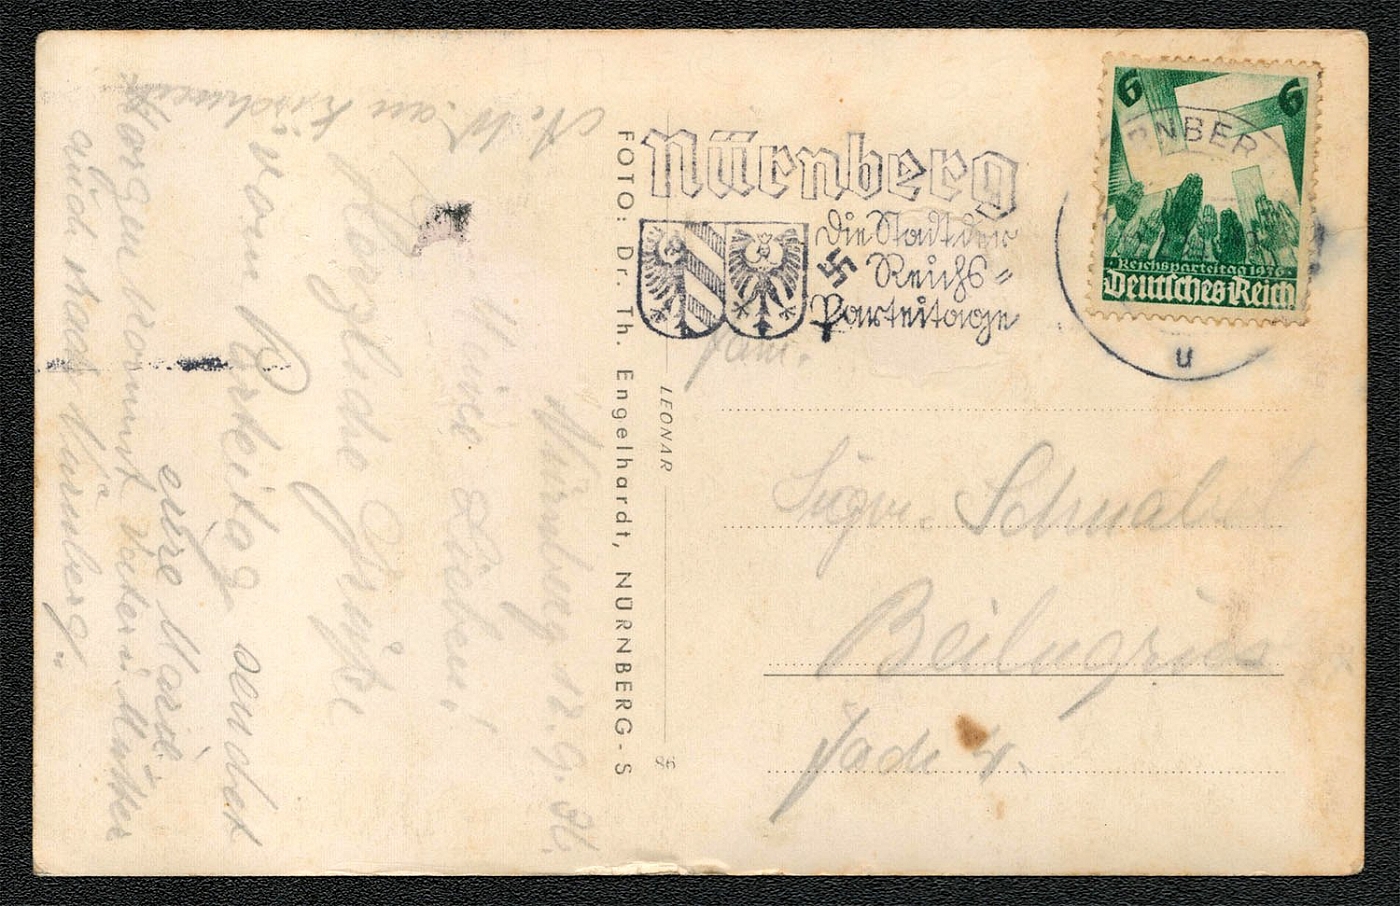 Nürnberg 12.9.36.
Meine Lieben!
Herzliche Grüße
vom Parteitag sendet
eure Marie
Morgen kommt Vater u. Mutter
auch nach Nürnberg.
FOTO: Dr. Th. Engelhardt, NÜRNBERG-S
LEONAR
Nürnberg
Die Stadt der
Reichs=
Parteitage
6 6
RNBER
Reichsparteitag 1936
Deutsches Reich
u
Fam.
Beilngries